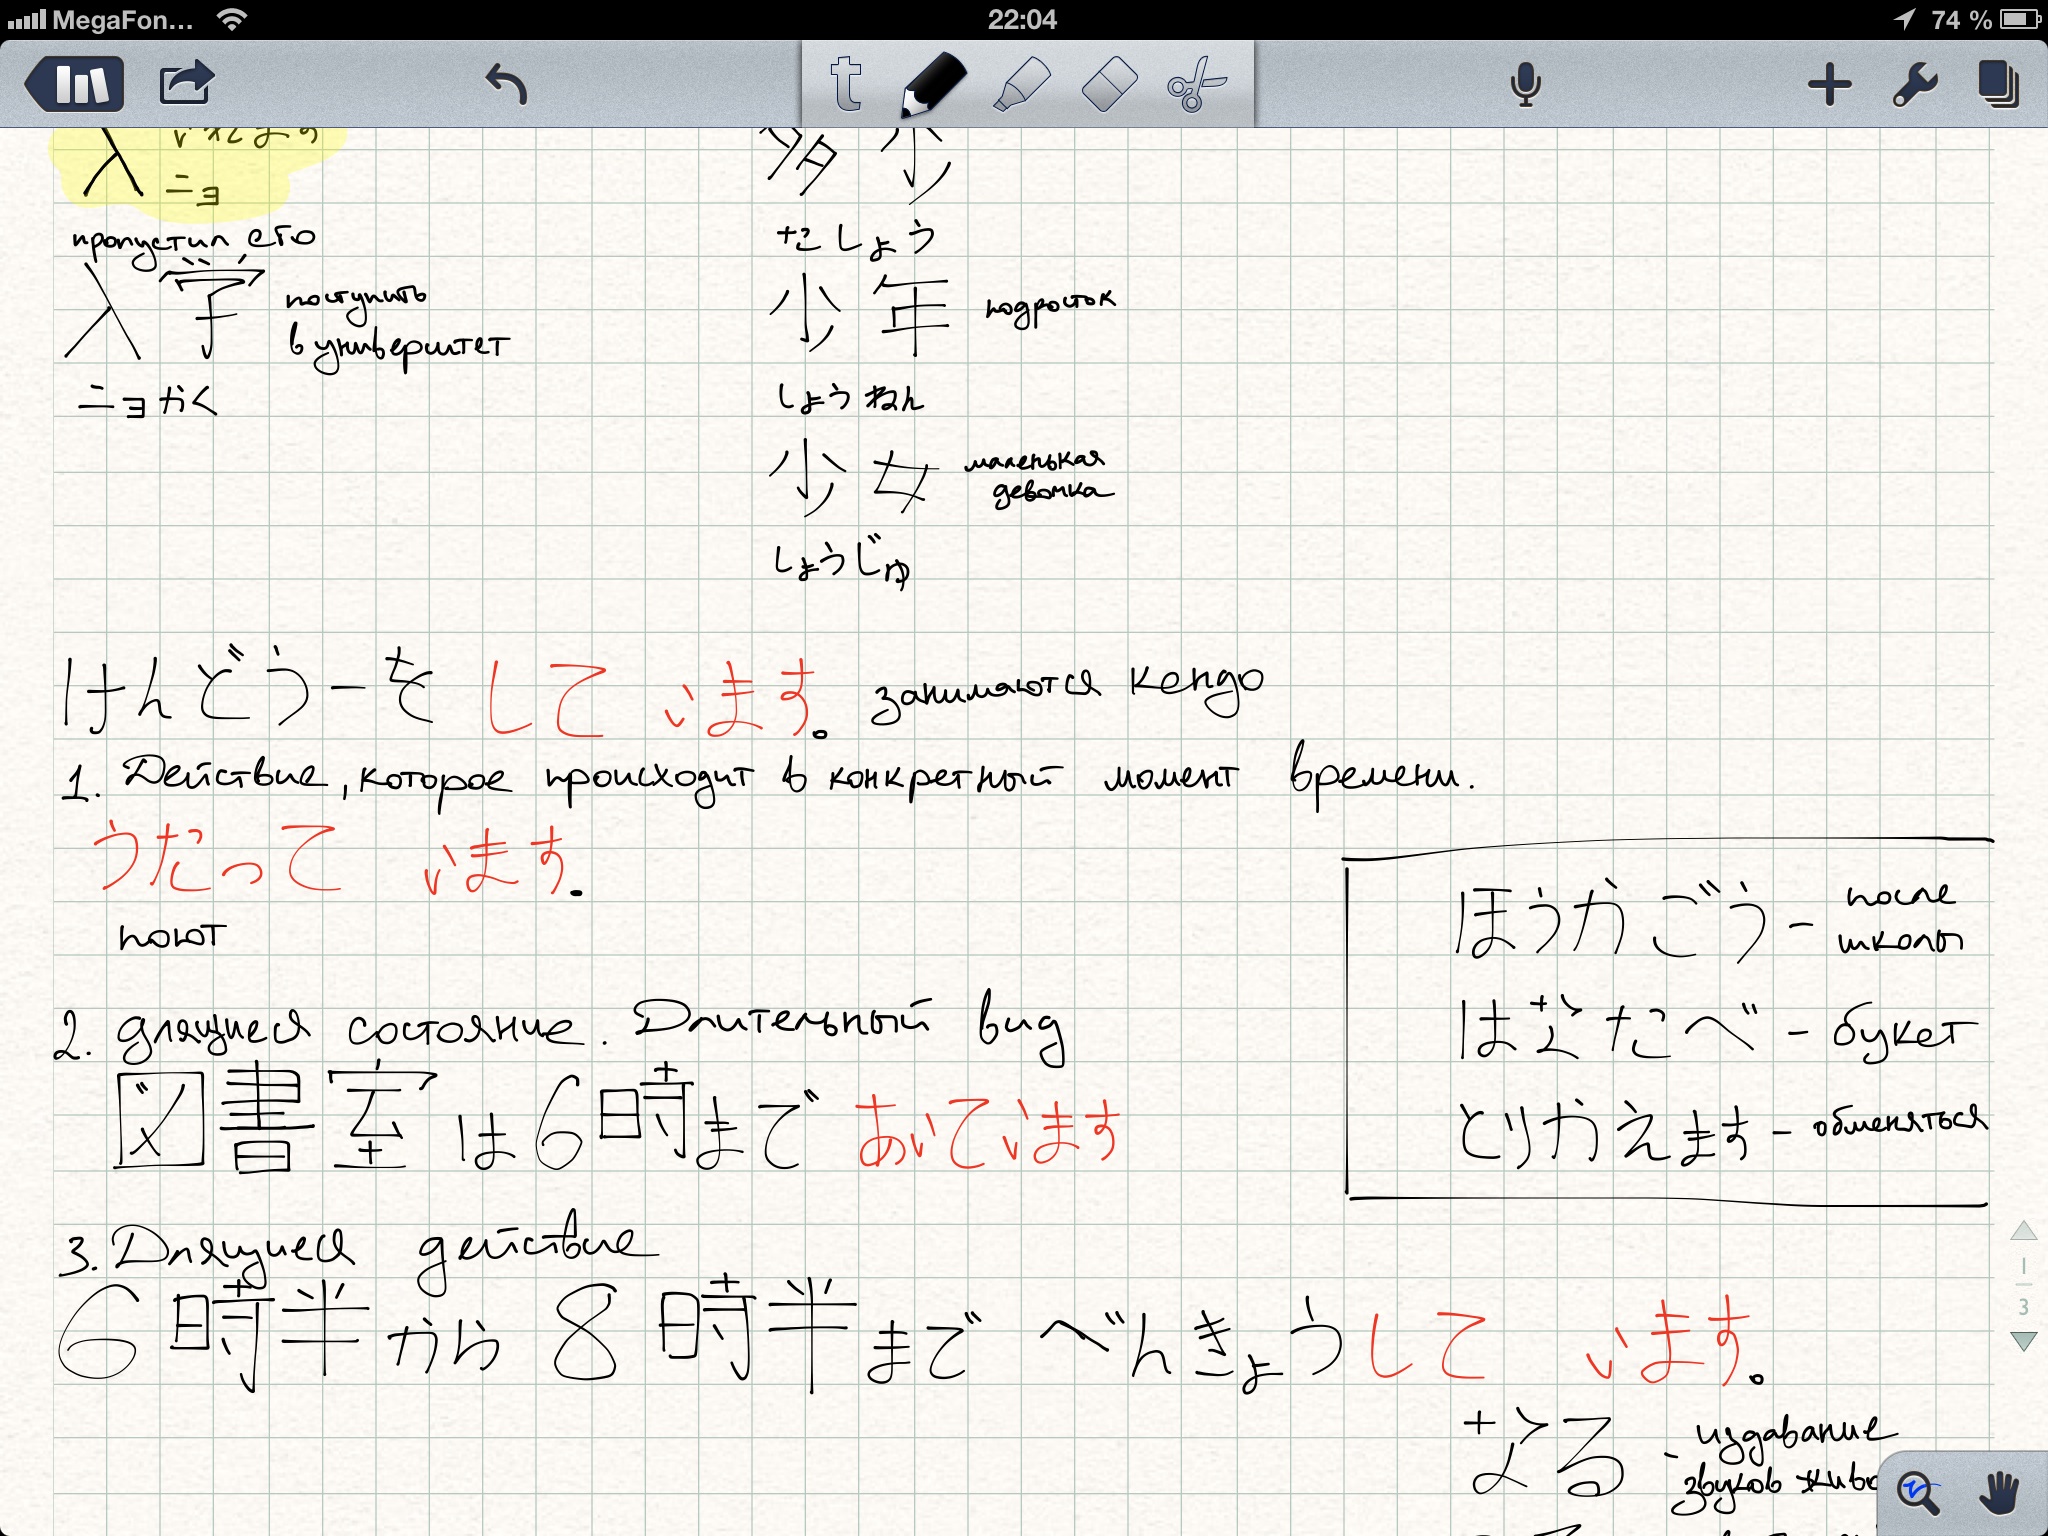 MegaFon... 22:04 74 %
t
入
ニョ
пропустил его
入学 поступить
в университет
ニョがく
多少
たしょう
少年 подросток
しょうねん
少女 маленькая
девочка
しょうじゅ
けんどうーを して います。 занимаются кендо
1. Действие, которое происходит в конкретный момент времени.
うたって います.
поют
ほうかごう - после
школы
はなたべ - букет
とりかえます - обменяться
2. длящиеся состояние. Длительный вид
図書室は6時まで あいています
3. Длящиеся действие
6時半から 8時半まで べんきょうして います。
なる - издавание
звуков
1
3